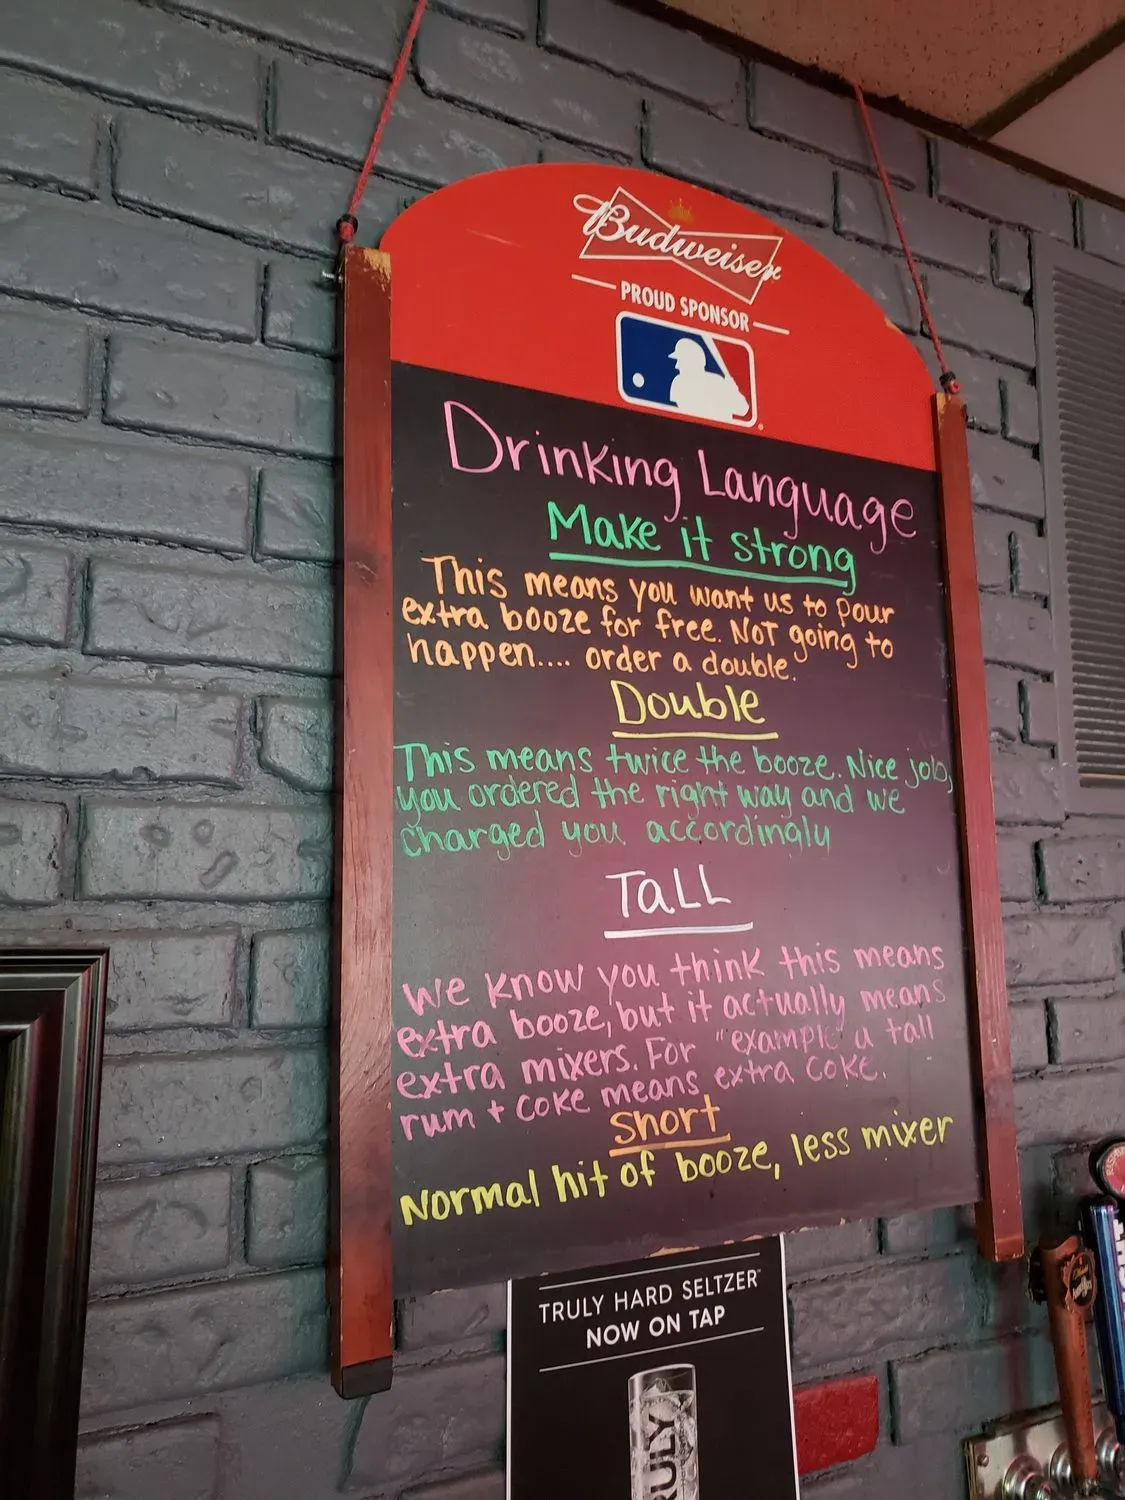 Budweiser
PROUD SPONSOR
Drinking Language
Make it strong
This means you want us to pour
extra booze for free. NOT going to
happen.... order a double.
Double
This means twice the booze. Nice job,
you ordered the right way and we
charged you accordingly
TaLL
We know you think this means
extra booze, but it actually means
extra mixers. For "example" a tall
rum + coke means extra coke.
Short
Normal hit of booze, less mixer
TRULY HARD SELTZER™
NOW ON TAP
RULY